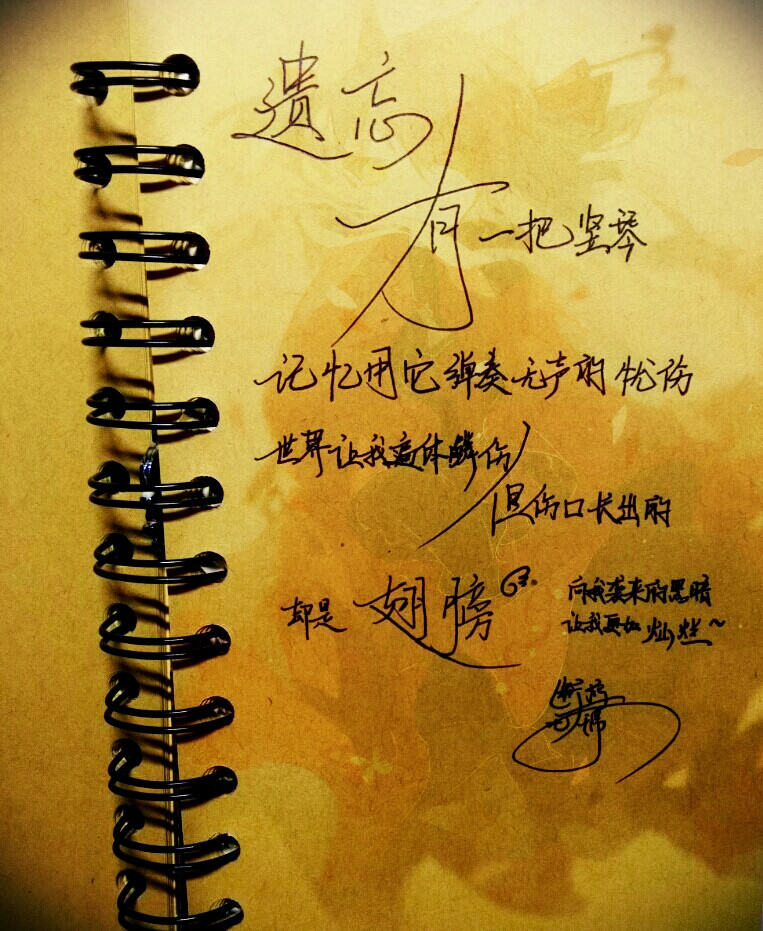 遗忘
有一把竖琴
记忆用它弹奏无声的忧伤
世界让我遍体鳞伤
但伤口长出的
却是翅膀
向我袭来的黑暗
让我更加灿烂~